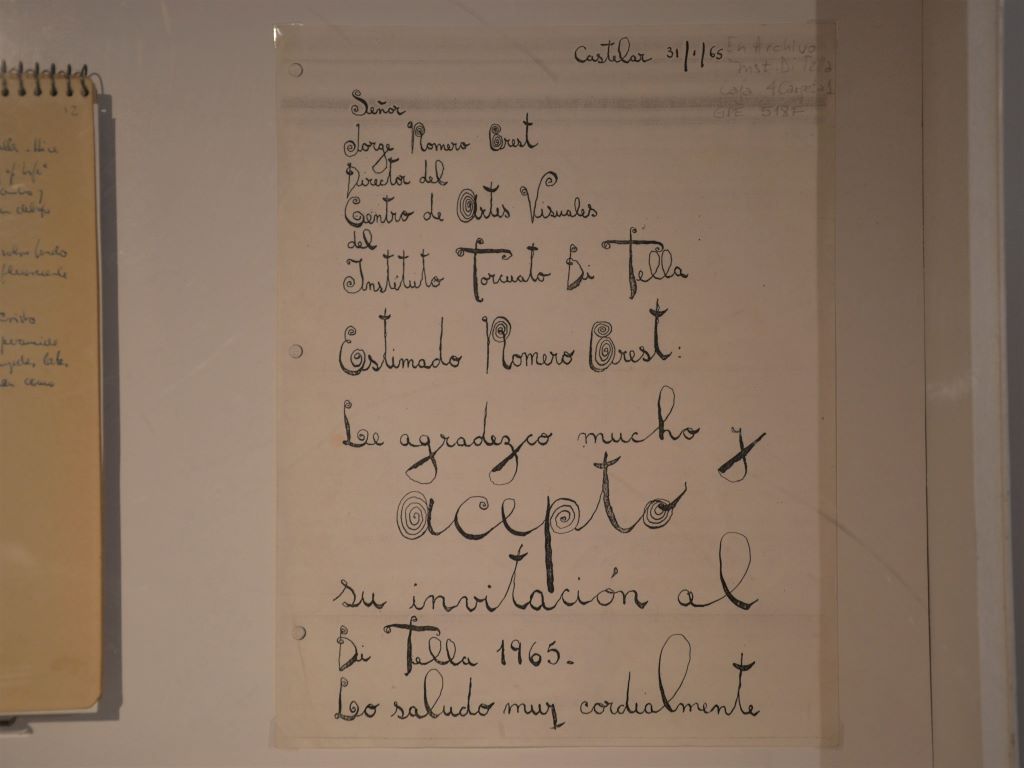 Castelar 31/1/65
En Archivo
Inst. Di Tella
Caja 4
Señor
Jorge Romero Brest
Director del
Centro de Artes Visuales
del
Instituto Torcuato Di Tella
Estimado Romero Brest:
Le agradezco mucho y
acepto
su invitación al
Di Tella 1965.
Lo saludo muy cordialmente
12